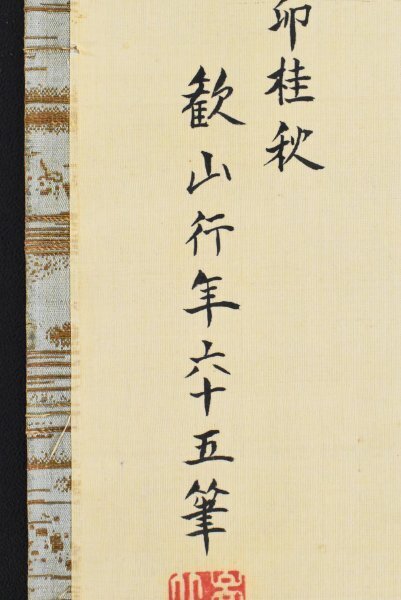 卯桂秋
歓山行年六十五筆